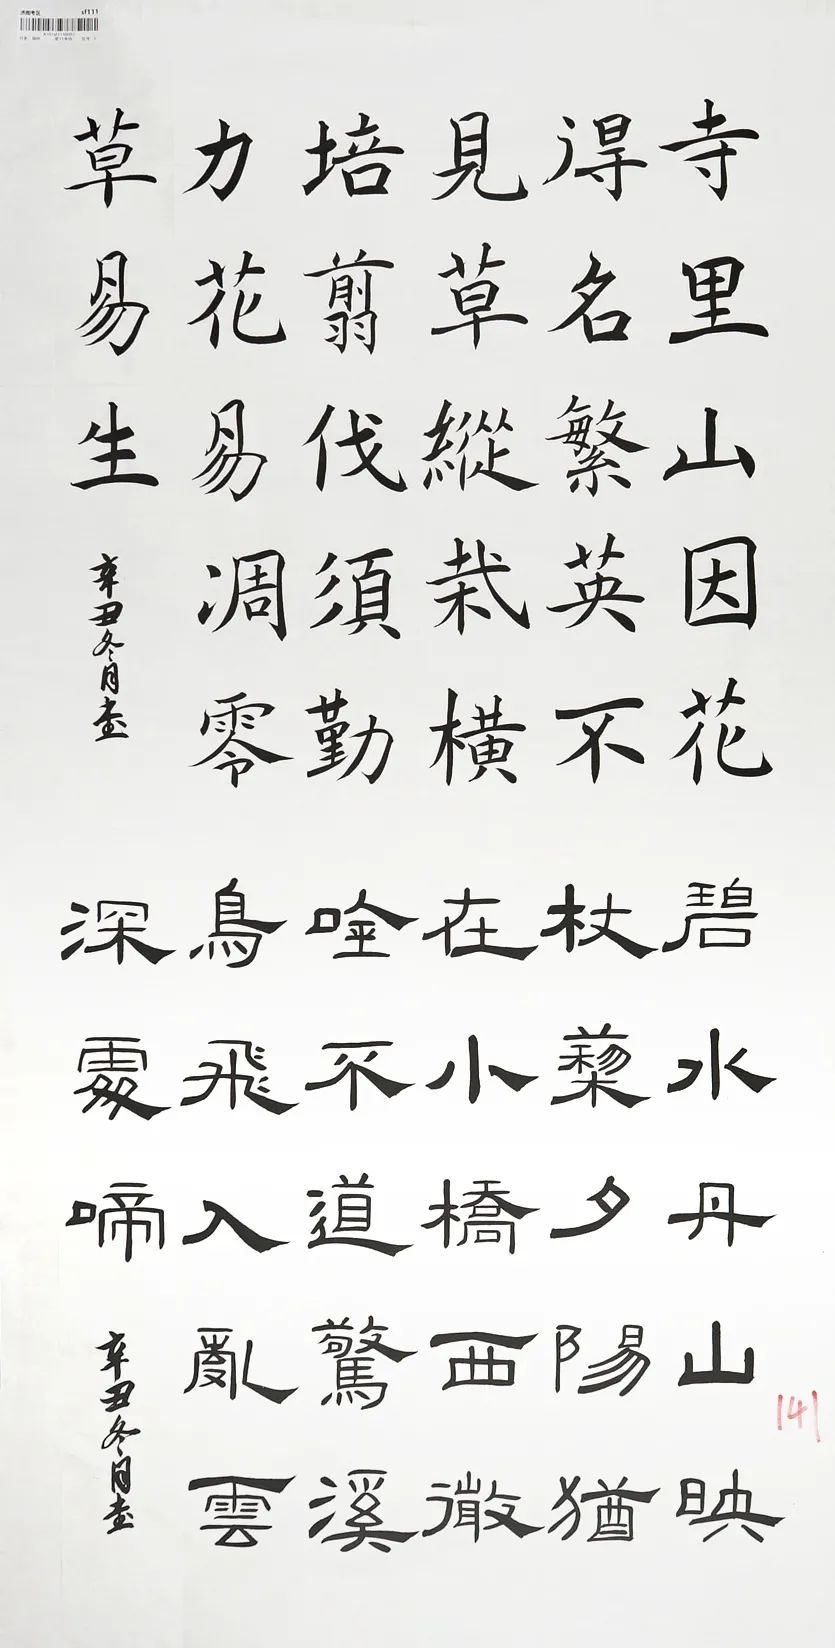 济南考区 sf111
寺里山因花
得名繁英不
見草縱栽橫
培翦伐須勤
力花易凋零
草易生
辛丑冬月书
碧水丹山映
杖藜夕陽猶
在小橋西微
唫不道驚溪
鳥飛入亂雲
深處啼
辛丑冬月书
141